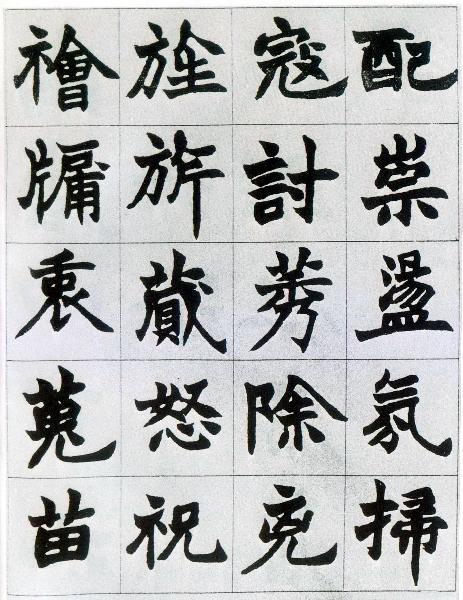 配祟盪氛掃
寇討莠除兇
旌旂蕆怒祝
禬牖衷蒐苗